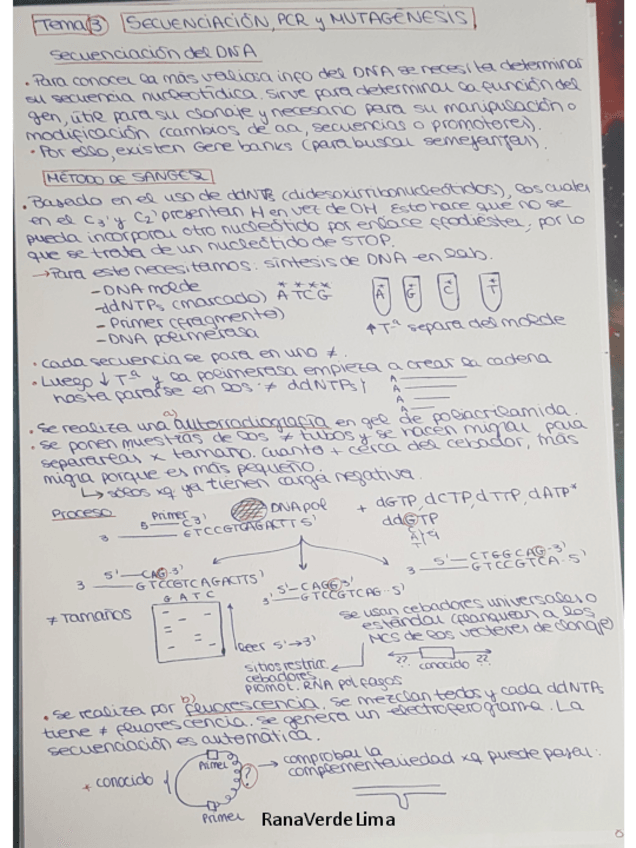 Tema 3 SECUENCIACIÓN, PCR y MUTAGÉNESIS
Secuenciación del DNA
• Para conocer la más valiosa info del DNA se necesita determinar
su secuencia nucleotídica. Sirve para determinar la función del
gen, útil para su clonaje y necesario para su manipulación o
modificación (cambios de aa, secuencias o promotores).
• Por esso, existen Gene banks (para buscar semejanzas).
MÉTODO DE SANGER
• Basado en el uso de ddNTPs (didesoxirribonucleótidos), los cuales
en el C3' y C2' presentan H en vez de OH. Esto hace que no se
pueda incorporar otro nucleótido por enlace ffodiéster, por lo
que se trata de un nucleótido de STOP.
→ Para esto necesitamos: síntesis de DNA en lab.
- DNA molde
- ddNTPs (marcado) A T C G
- Primer (fragmento)
- DNA polimerasa
A G C T
↑Tª separa del molde
• Cada secuencia se para en uno ≠.
• Luego ↓Tª y la polimerasa empieza a crear la cadena
hasta pararse en los ≠ ddNTPs
A
A
A
A
a)
• Se realiza una autorradiografía en gel de poliacrilamida.
• Se ponen muestras de los ≠ tubos y se hacen migrar para
separarlas x tamaño. Cuanto + cerca del cebador, más
migra porque es más pequeño.
↳ solos xq ya tienen carga negativa.
Proceso
Primer
DNA pol
+ dGTP, dCTP, dTTP, dATP*
ddGTP
3 GTCCGTCAGACTT 5'
5'-CAG-3'
3 GTCCGTCAGACTTS'
5'-CAGG-3'
3' GTCCGTCAG-5'
5'-CTGGCAG-3'
3 GTCCGTCA-5'
≠ Tamaños
G A T C
leer 5'→3'
Se usan cebadores universales o
estándar (flanquean a los
MCS de los vectores de clonaje)
sitios restricc.
cebadores
promot. RNA pol fagos
?? conocido ??
b)
• Se realiza por fluorescencia. Se mezclan todos y cada ddNTPs
tiene ≠ fluorescencia. Se genera un electroferograma. La
secuenciación es automática.
* conocido
Primer
?
Primer
→ comprobar la
complementariedad xq puede pasar:
RanaVerdeLima